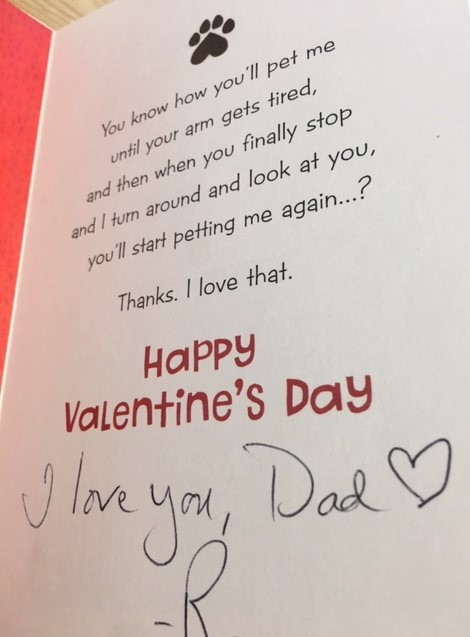 You know how you'll pet me
until your arm gets tired,
and then when you finally stop
and I turn around and look at you,
you'll start petting me again...?
Thanks. I love that.
Happy
Valentine's Day
I love you, Dad ♡
-R